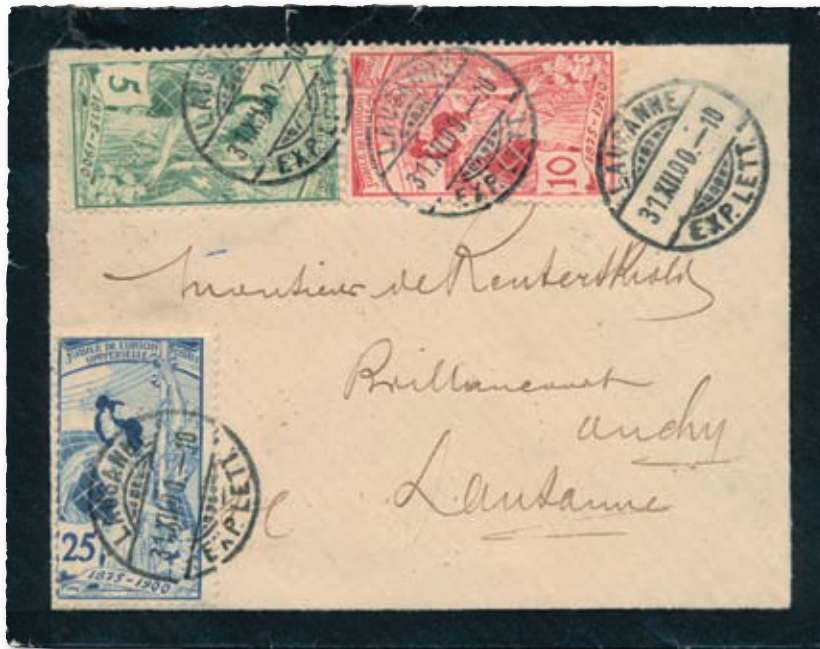 5
1875-1900
LAUSANNE
31.XII.00.-10
EXP. LETT.
JUBILE DE L'UNION
10
1875-1900
LAUSANNE
31.XII.00.-10
EXP. LETT.
LAUSANNE
31.XII.00.-10
EXP. LETT.
Monsieur de Reuterskiold
Brillancourt
Ouchy
Lausanne
JUBILE DE L'UNION
UNIVERSELLE
25
1875-1900
LAUSANNE
31.XII.00.-10
EXP. LETT.